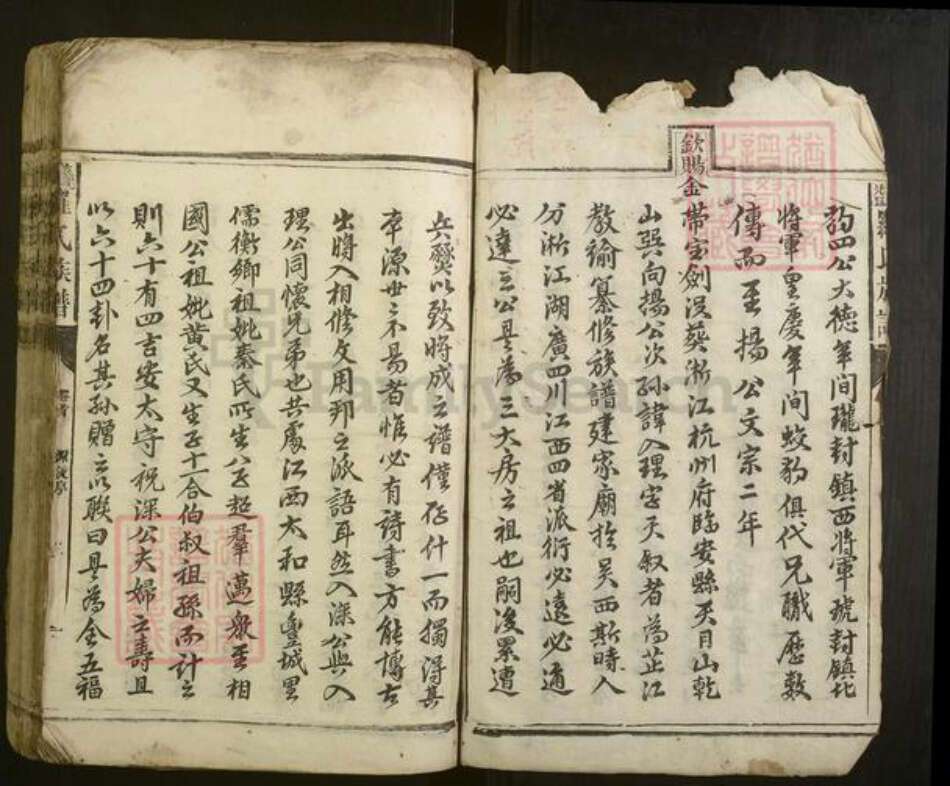 韵四公大德年間瓏封鎮西將軍琥封鎮北
將軍皇慶年間蛟豹俱代兄職歷數
傳而至揚公文宗二年
欽賜金
帶宝劍没葵浙江杭州府臨安縣天目山乾
山巽向揚公次孫諱入理字天叙者為芷江
教諭纂修族譜建家廟於吴西斯時人
分淅江湖廣四川江西四省派衍必遠必通
必達三公是為三大房之祖也嗣後累遭
兵燹以致將成之譜僅存什一而獨得其
卒源世之不易者惟必有詩書方能博古
出將入相修文用邦之派語耳然入深公與入
理公同懷兄弟也共處江西太和縣豊城里
儒衡鄉祖妣秦氏所生八子超羣邁衆至相
國公祖妣黄氏又生子十一合伯叔祖孫而計之
則六十有四吉安太守祝深公夫婦之壽且
以六十四卦名其孫贈之以聯曰是為全五福
氏族譜
FamilySearch